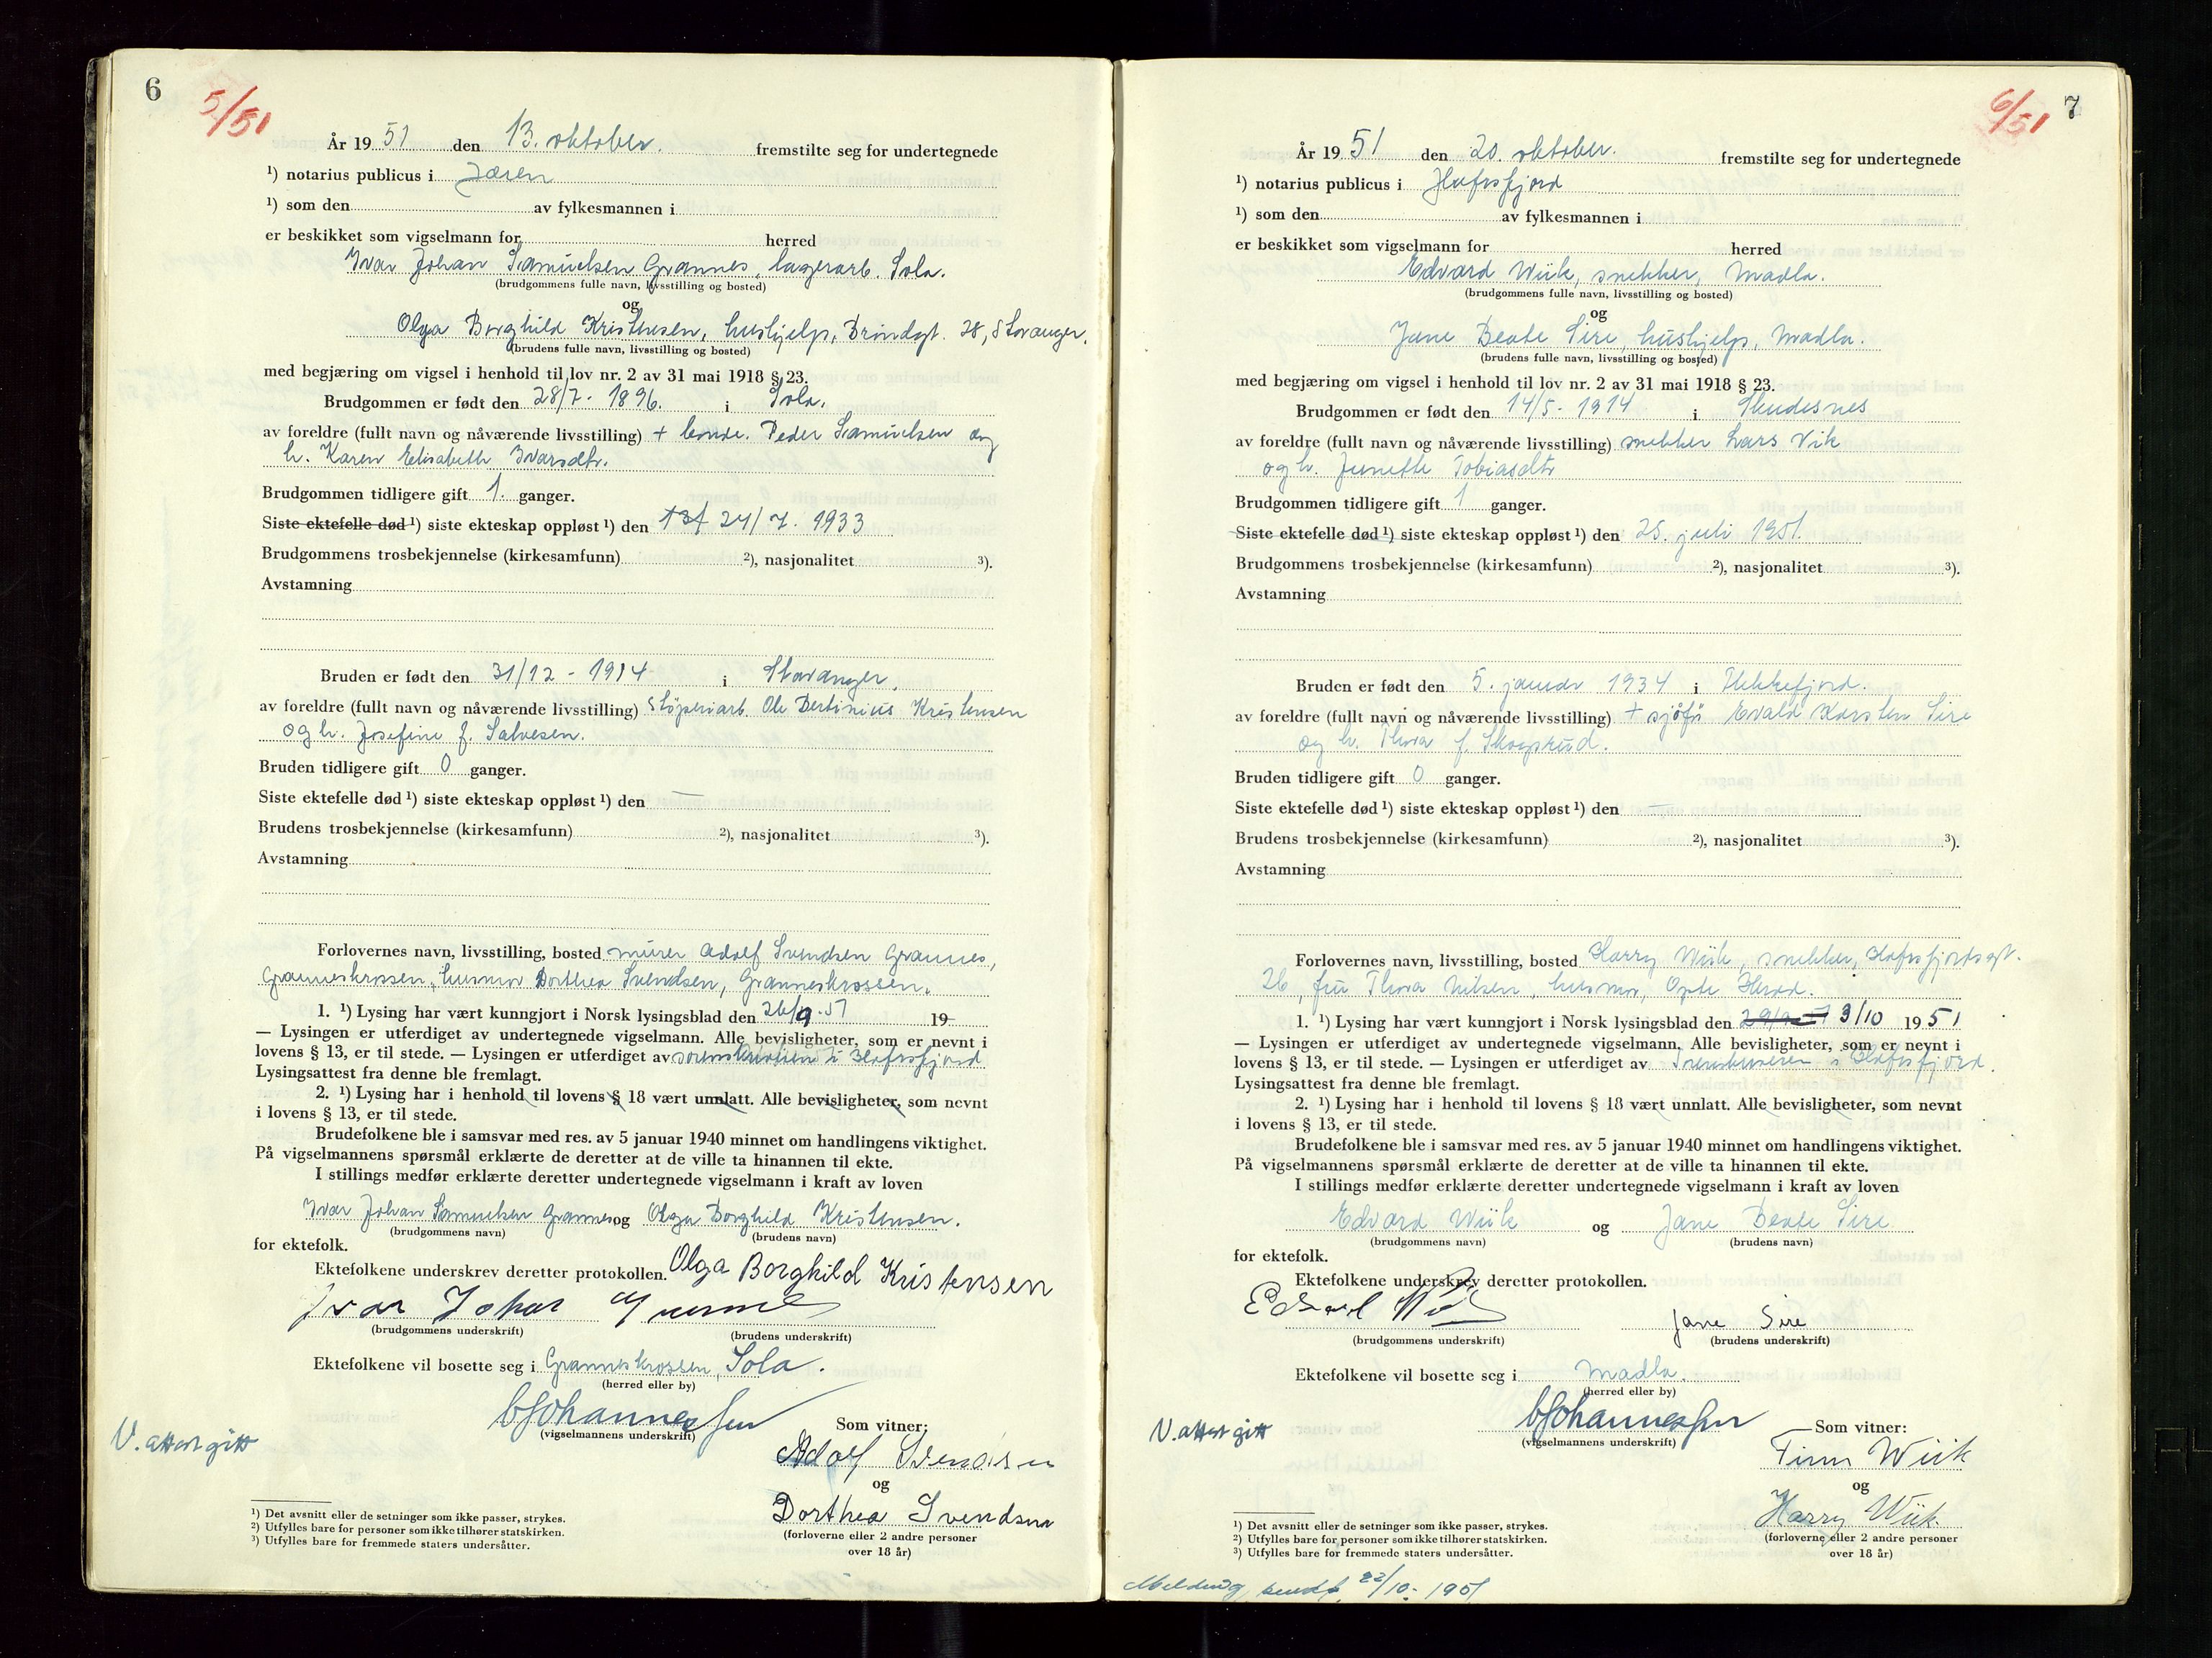 6
5/51
År 1951 den 13. oktober. fremstilte seg for undertegnede
¹) notarius publicus i Jæren
¹) som den av fylkesmannen i
er beskikket som vigselmann for herred
Ivar Johan Samuelsen Grannes, lagerarb. Sola.
(brudgommens fulle navn, livsstilling og bosted)
og
Olga Borghild Kristensen, hushjelp, 28, Stavanger.
(brudens fulle navn, livsstilling og bosted)
med begjæring om vigsel i henhold til lov nr. 2 av 31 mai 1918 § 23.
Brudgommen er født den 28/7. 1896. i Sola.
av foreldre (fullt navn og nåværende livsstilling) + bonde. Peder Samuelsen og
h. Karen Elisabeth Ivarsdtr.
Brudgommen tidligere gift 1. ganger.
Siste ektefelle død ¹) siste ekteskap oppløst ¹) den 24/7. 1933
Brudgommens trosbekjennelse (kirkesamfunn) ²), nasjonalitet ³).
Avstamning
Bruden er født den 31/12 - 1914 i Stavanger.
av foreldre (fullt navn og nåværende livsstilling) Støperiarb. Ole Bertinius Kristensen
og h. Josefine f. Salvesen.
Bruden tidligere gift 0 ganger.
Siste ektefelle død ¹) siste ekteskap oppløst ¹) den —
Brudens trosbekjennelse (kirkesamfunn) ²), nasjonalitet ³).
Avstamning
Forlovernes navn, livsstilling, bosted murer Adolf Svendsen Grannes,
Granneskrossen, husmor Dorthea Svendsen, Granneskrossen.
1. ¹) Lysing har vært kunngjort i Norsk lysingsblad den 26/9.51 19
— Lysingen er utferdiget av undertegnede vigselmann. Alle bevisligheter, som er nevnt i
lovens § 13, er til stede. — Lysingen er utferdiget av sorenskriveren i Hafrsfjord
Lysingsattest fra denne ble fremlagt.
2. ¹) Lysing har i henhold til lovens § 18 vært unnlatt. Alle bevisligheter, som nevnt
i lovens § 13, er til stede.
Brudefolkene ble i samsvar med res. av 5 januar 1940 minnet om handlingens viktighet.
På vigselmannens spørsmål erklærte de deretter at de ville ta hinannen til ekte.
I stillings medfør erklærte deretter undertegnede vigselmann i kraft av loven
Ivar Johan Samuelsen Grannes og Olga Borghild Kristensen.
(brudgommens navn) (brudens navn)
for ektefolk.
Ektefolkene underskrev deretter protokollen. Olga Borghild Kristensen
Ivar Johan Grannes
(brudgommens underskrift) (brudens underskrift)
Ektefolkene vil bosette seg i Granneskrossen, Sola.
(herred eller by)
BJohannessen
(vigselmannens underskrift)
Som vitner:
V. attest gitt
Adolf Svendsen
og
Dorthea Svendsen
(forloverne eller 2 andre personer
over 18 år)
¹) Det avsnitt eller de setninger som ikke passer, strykes.
²) Utfylles bare for personer som ikke tilhører statskirken.
³) Utfylles bare for fremmede staters undersåtter.
7
6/51
År 1951 den 20. oktober. fremstilte seg for undertegnede
¹) notarius publicus i Hafrsfjord
¹) som den av fylkesmannen i
er beskikket som vigselmann for herred
Edvard Wiik, snekker, Madla.
(brudgommens fulle navn, livsstilling og bosted)
og
Jane Beate Sire, hushjelp, Madla.
(brudens fulle navn, livsstilling og bosted)
med begjæring om vigsel i henhold til lov nr. 2 av 31 mai 1918 § 23.
Brudgommen er født den 14/5 - 1914 i Skudesnes
av foreldre (fullt navn og nåværende livsstilling) snekker Lars Vik
og h. Jenette Tobiasdtr
Brudgommen tidligere gift 1 ganger.
Siste ektefelle død ¹) siste ekteskap oppløst ¹) den 25. juli 1951.
Brudgommens trosbekjennelse (kirkesamfunn) ²), nasjonalitet ³).
Avstamning
Bruden er født den 5. januar 1934 i Flekkefjord.
av foreldre (fullt navn og nåværende livsstilling) + sjøfør Evald Karsten Sire
og h. Thora f. Skogsrud.
Bruden tidligere gift 0 ganger.
Siste ektefelle død ¹) siste ekteskap oppløst ¹) den —
Brudens trosbekjennelse (kirkesamfunn) ²), nasjonalitet ³).
Avstamning
Forlovernes navn, livsstilling, bosted Harry Wiik, snekker, Hafrsfjordsgt.
26, fru Thora Nilsen, husmor,
1. ¹) Lysing har vært kunngjort i Norsk lysingsblad den 3/10 1951
— Lysingen er utferdiget av undertegnede vigselmann. Alle bevisligheter, som er nevnt i
lovens § 13, er til stede. — Lysingen er utferdiget av Sorenskriveren i Hafrsfjord.
Lysingsattest fra denne ble fremlagt.
2. ¹) Lysing har i henhold til lovens § 18 vært unnlatt. Alle bevisligheter, som nevnt
i lovens § 13, er til stede.
Brudefolkene ble i samsvar med res. av 5 januar 1940 minnet om handlingens viktighet.
På vigselmannens spørsmål erklærte de deretter at de ville ta hinannen til ekte.
I stillings medfør erklærte deretter undertegnede vigselmann i kraft av loven
Edvard Wiik og Jane Beate Sire
(brudgommens navn) (brudens navn)
for ektefolk.
Ektefolkene underskrev deretter protokollen.
Edvard Wiik Jane Sire
(brudgommens underskrift) (brudens underskrift)
Ektefolkene vil bosette seg i Madla.
(herred eller by)
BJohannessen
(vigselmannens underskrift)
Som vitner:
V. attest gitt
Finn Wiik
og
Harry Wiik.
(forloverne eller 2 andre personer
over 18 år)
¹) Det avsnitt eller de setninger som ikke passer, strykes.
²) Utfylles bare for personer som ikke tilhører statskirken.
³) Utfylles bare for fremmede staters undersåtter.
Melding sendt 22/10. 1951